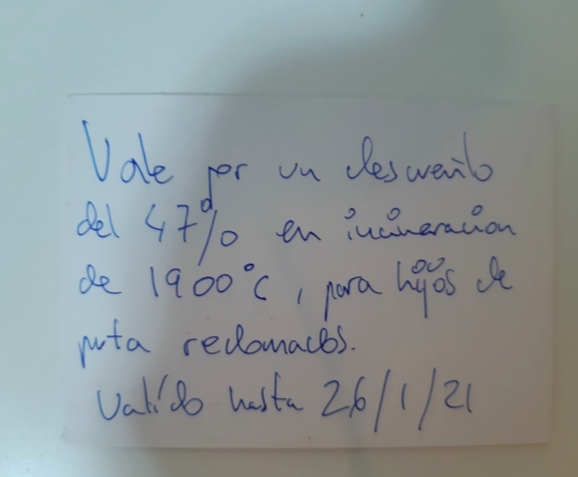 Vale por un descuento
del 47% en incineracion
de 1900°c, para hijos de
puta reclomados.
Valído hasta 26/1/21